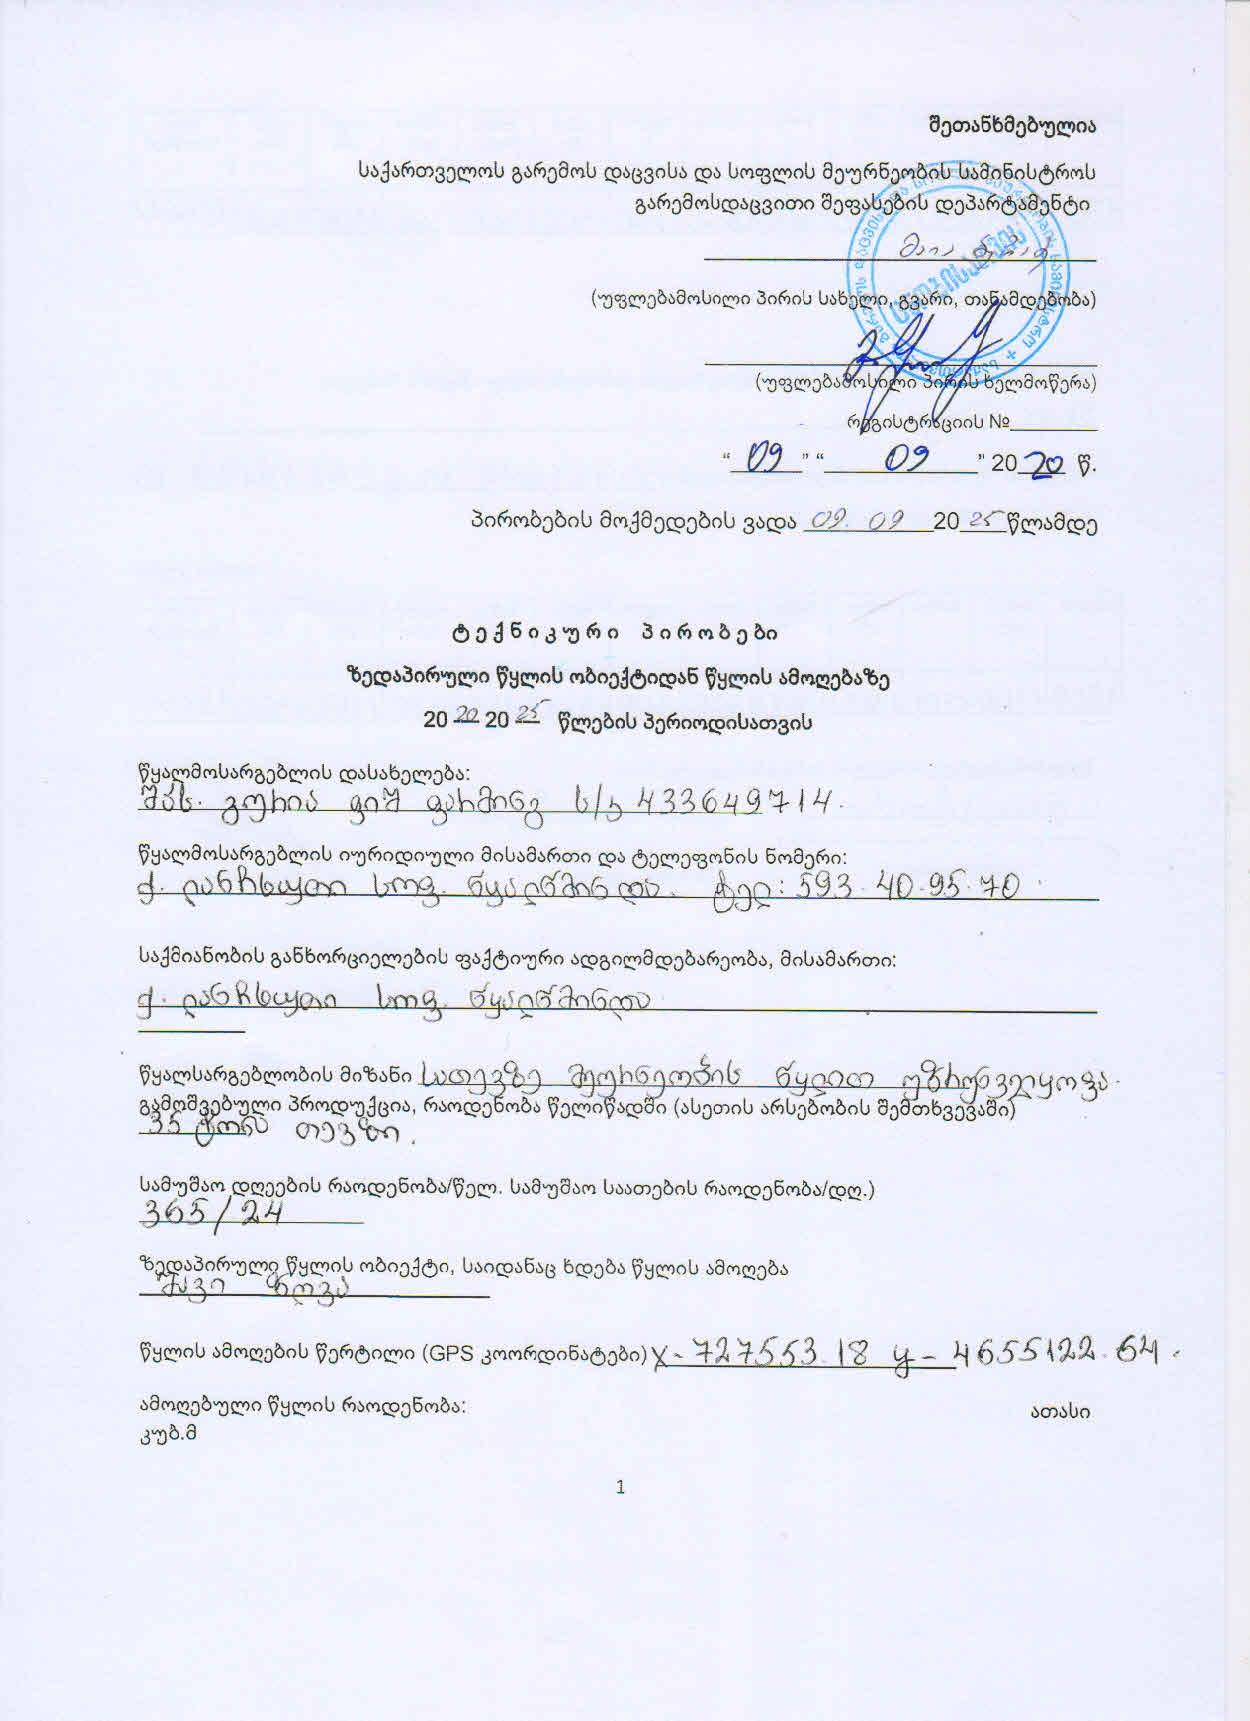 შეთანხმებულია
საქართველოს გარემოს დაცვისა და სოფლის მეურნეობის სამინისტროს
გარემოსდაცვითი შეფასების დეპარტამენტი
მაია
(უფლებამოსილი პირის სახელი, გვარი, თანამდებობა)
(უფლებამოსილი პირის ხელმოწერა)
რეგისტრაციის №________
“ 09 ” “ 09 ” 20 20 წ.
პირობების მოქმედების ვადა 09. 09 20 25 წლამდე
ტექნიკური პირობები
ზედაპირული წყლის ობიექტიდან წყლის ამოღებაზე
20 20 20 25 წლების პერიოდისათვის
წყალმოსარგებლის დასახელება:
შპს. გურია ფიშ ფარმინგ ს/კ 433649714.
წყალმოსარგებლის იურიდიული მისამართი და ტელეფონის ნომერი:
ქ. ლანჩხუთი სოფ. წყალწმინდა. ტელ: 593. 40.95.70
საქმიანობის განხორციელების ფაქტიური ადგილმდებარეობა, მისამართი:
ქ. ლანჩხუთი სოფ. წყალწმინდა
წყალსარგებლობის მიზანი სათევზე მეურნეობის წყლით უზრუნველყოფა.
გამოშვებული პროდუქცია, რაოდენობა წელიწადში (ასეთის არსებობის შემთხვევაში)
35 ტონა თევზი.
სამუშაო დღეების რაოდენობა/წელ. სამუშაო საათების რაოდენობა/დღ.)
365/24
ზედაპირული წყლის ობიექტი, საიდანაც ხდება წყლის ამოღება
შავი ზღვა
წყლის ამოღების წერტილი (GPS კოორდინატები) X- 727553.18 y- 4655122.64.
ამოღებული წყლის რაოდენობა: ათასი
კუბ.მ
1